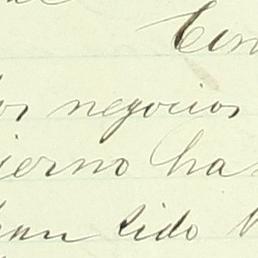 Con
os negocios
ierno ha
han sido